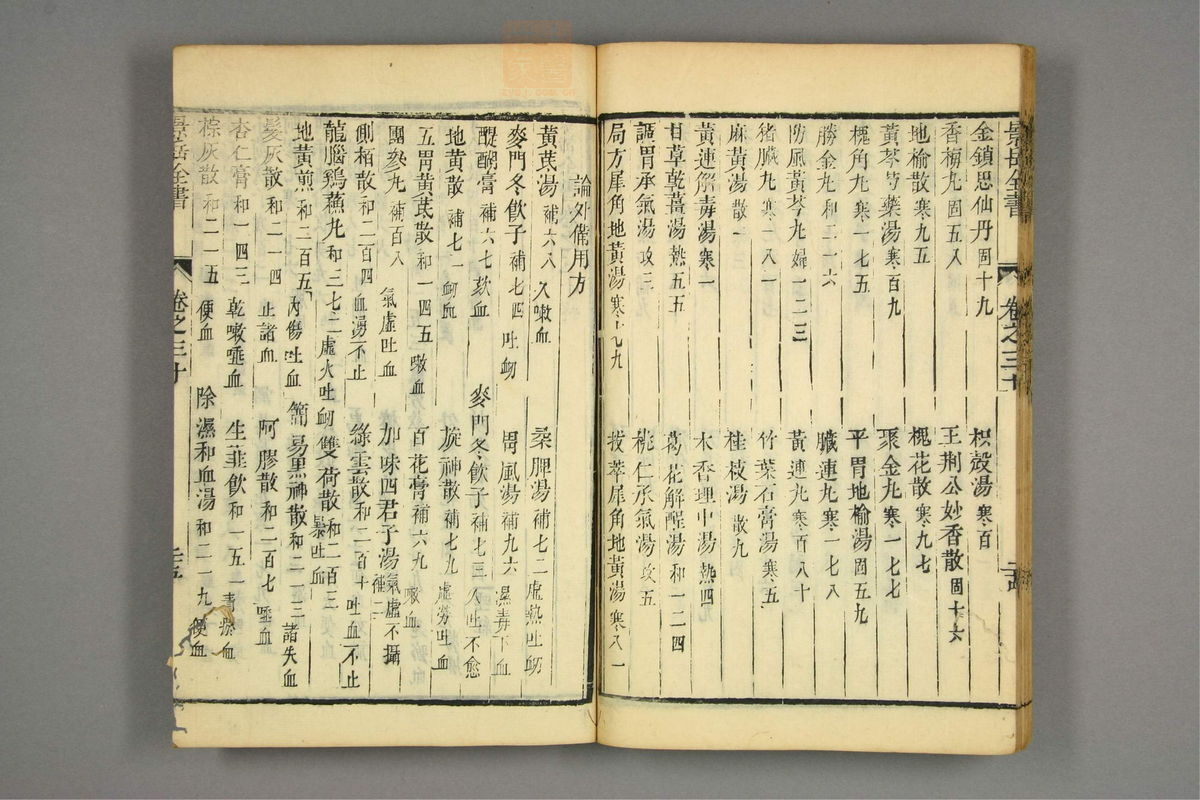 景岳全書 卷之三十
金鎖思仙丹固十九 枳殼湯寒百
香梅丸固五八 王荆公妙香散固十六
地榆散寒九五 槐花散寒九七
黃芩芍藥湯寒百九 聚金丸寒一七七
槐角丸寒一七五 平胃地榆湯固五九
勝金丸和二一六 臟連丸寒一七八
防風黃芩丸婦一二三 黃連丸寒百八十
猪臟丸寒一八一 竹葉石膏湯寒五
麻黃湯散一 桂枝湯散九
黃連解毒湯寒一 木香理中湯熱四
甘草乾薑湯熱五五 葛花解酲湯和一二四
調胃承氣湯攻三 桃仁承氣湯攻五
局方犀角地黃湯寒七九 拔萃犀角地黃湯寒八一
論外備用方
黃茋湯補六八 久嗽血 桑膠湯補七二 虛熱吐衂
麥門冬飲子補七四 吐衂 胃風湯補九六 濕毒下血
醍醐膏補六七 欬血 麥門冬飲子補七三 久吐不愈
地黃散補七一 衂血 旋神散補七九 虛勞吐血
五胃黃茋散和一四五 嗽血 百花膏補六九 嗽血
團參丸補百八 氣虛吐血 加味四君子湯補二 氣虛不攝
側栢散和二百四 血湧不止 綠雲散和二百十 吐血不止
龍腦鷄蘇丸和三七二 虛火吐衂 雙荷散和二百三 暴吐血
地黃煎和二百五 內傷吐血 簡易黑神散和二一三 諸失血
髪灰散和二一四 止諸血 阿膠散和二百七 唾血
杏仁膏和一四三 乾嗽唾血 生韮飲和一五一 青瘀血
棕灰散和二一五 便血 除濕和血湯和二一九 便血
景岳全書 卷之三十